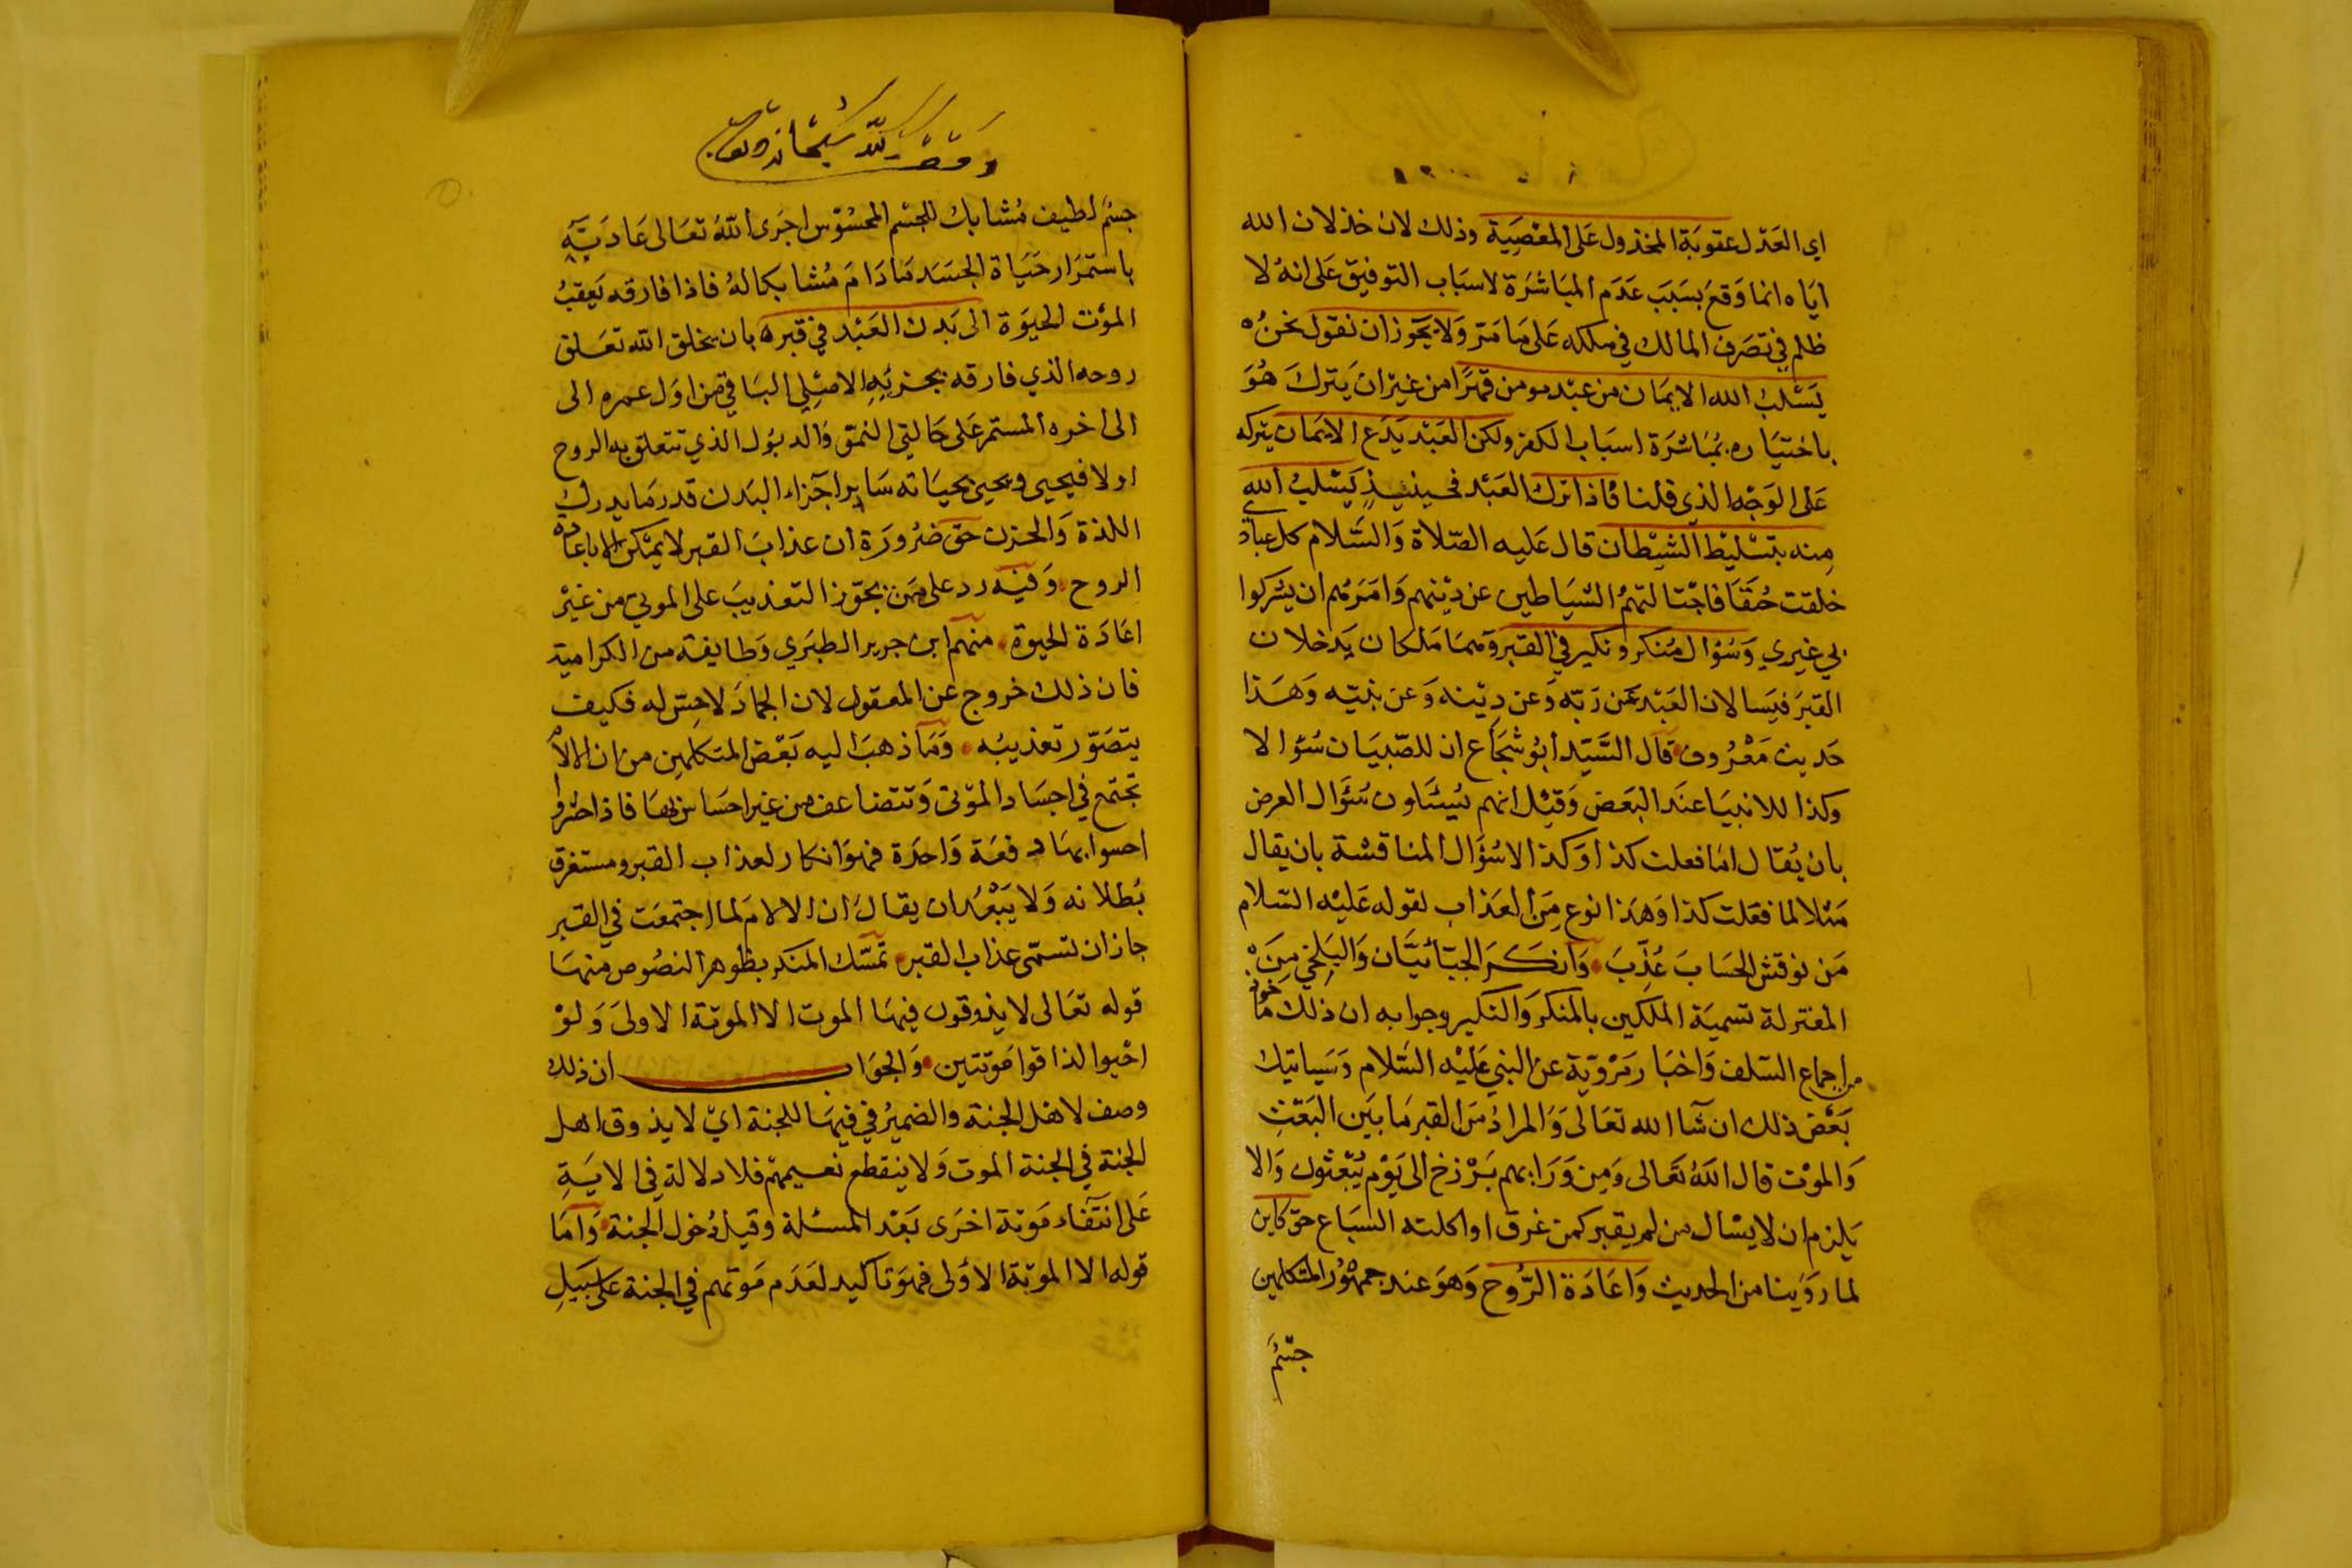 اي العَدْل عقوبَة المخذول عَلى المعْصِيَة وَذلك لان خذلان الله
ايَاه انما وَقعَ بسَبَب عَدَم المبَاشَرَة لاسبَاب التوفيق عَلى انهُ لا
ظلم في تصَرف المالك في ملكه عَلى مَا مَرّ وَلا يجَوز ان نقول نحنُ
يَسْلبُ الله الايمَان من عبْد مومن قهرًا من غيْر ان يَتركَ هُوَ
باختيَاره بمُبَاشَرَة اسبَاب الكفر ولكن العَبْد يَدَع الايمَان يتركه
عَلى الوَجْه الذي قلنا فاذا ترك العَبْد فحينيذٍ يَسْلبُ الله
مِنه بتسْليْط الشيْطان قال عَليه الصّلاة وَالسَّلام كل عبَادي
خلقت حُنَفَا فاجْتالتهمُ الشيَاطين عن دِيْنهم وَامَرَتهم ان يُشركوا
بي غيري وَسُؤال مُنكر ونكير في القبر وَهمَا مَلكان يَدخلان
القبَر فيَسالان العَبْد عَن رَبّه وَعن دِيْنه وَعن نبيّه وَهَذا
حَديث مَعْرُوف قال السَّيّد ابُو شجَاع ان للصّبيَان سُؤالا
وكذا للانبيَا عنَد البَعَض وَقيْل انهم يُسْئَلون سُئَوال العرض
بان يُقال امَا فعلت كذا وَكذا لا سُؤَال المناقشة بان يقال
مَثلا لما فعَلت كذا وَهَذا نوع مِنَ العَذاب لقوله عَليْه السّلام
مَن نوقش الحسَابَ عُذِّبَ وَانكَرَ الجبّائيَّان وَالبَلخي مِنَ
المعتزلة تسميَة المَلكين بالمنكرَ وَالنكير وجوابه ان ذلك مَاخوذ
من اجماع السّلف وَاخبَار مَرْوِيّة عن النبي عَليْه السَّلام وَسَياتيك
بَعْض ذلك ان شآ الله تعَالىَ وَالمرادُ منَ القبر مَا بَين البَعْثِ
وَالموْت قال اللهُ تعَالى وَمِن وَرَايهم بَرْزخ الى يَوْم يُبْعثون وَالا
يَلزم ان لا يسْال من لم يقبر كمن غرق او اكلته السّبَاع حق كاين
لما روَينا من الحديث وَاعَادَة الرُّوح وَهوَ عند جمهُوُر المتكلمين
جسْم
جسْم لطيف مُشابك للجسْم المحسُوْس اجرَى اللهُ تعَالى عَادَتَه
باستمرَار حَيَاة الجسَد مَا دَامَ مُشابكا لهُ فاذا فارقه يَعقبُ
الموْت الحيوَة الى بَدن العَبْد في قبره بان يخلق الله تعَلق
روحه الذي فارقه بجزئِهِ الاصْلِي البَاقي من اوَل عمره الى
الى اخره المستمر عَلى حَالتي النموّ وَالدبُول الذي تتعلق به الروح
اولا فيحيى ويحيى بحيَاته سَاير اجزاء البَدن قدر مَا يدرك
اللذة وَالحزن حَق ضرُورَة ان عذابَ القبر لا يمْكن الا باعادة
الروح وَفيْه رد على مَن يجَوّز التعذيبَ على الموتى من غيْر
اعَادَة الحيوة منهم ابن جرير الطبَري وَطايفة من الكرامية
فان ذلك خروج عن المعقول لان الجمادَ لا حِسّ له فكيف
يتصَوّر تعذيبُه وَمَا ذهبَ اليه بَعْض المتكلمين من ان الالام
تجتمع في اجسَاد الموْتى وَتتضاعف من غير احسَاس بهَا فاذا حشروا
احسوا بهَا دفعَة وَاحدَة فهوَ انكار لعذاب القبر ومستغرق
بُطلانه وَلا يَبْعُد ان يقالَ ان الالامَ لما اجتمعَت في القبر
جاز ان تسمّى عذاب القبر تمسّك المنكر بظوهر النصُوص منهَا
قوله تعَالى لا يذوقون فيهَا الموت الا الموتة الاولىَ وَلوْ
احْيوا لذاقوا مَوتتين وَالجوَاب ان ذلك
وصف لاهل الجنة والضميُر في فيهَا للجنة ايْ لا يذوق اهل
الجنة في الجنة الموت وَلا ينقطع نعيمهم فلا دلالة في الايَةِ
عَلى انتفَاء مَوتة اخرَى بَعْد المسئلة وقبل دُخول الجنة وَامَا
قوله الا الموتة الاوَلى فهوَ تاكيد لعَدَم مَوتهم في الجنة عَلى سَبيَلِ